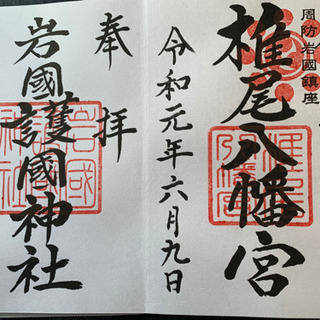 周防岩國鎮座
椎尾八幡宮
令和元年六月九日
奉拝
岩國護國神社